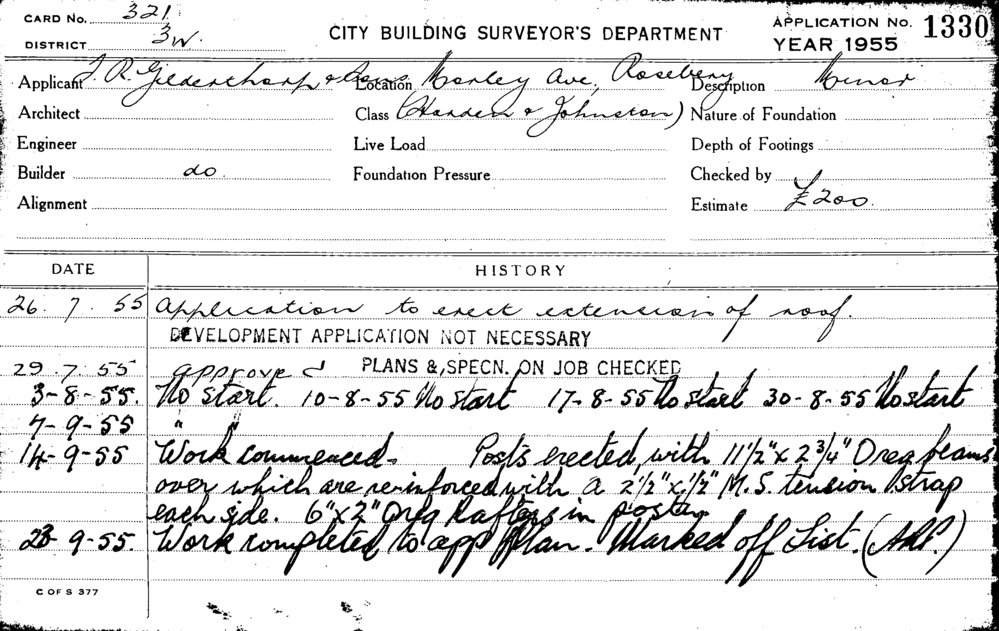 CARD No. 321
DISTRICT 3W.
CITY BUILDING SURVEYOR'S DEPARTMENT
APPLICATION No. 1330
YEAR 1955
Applicant J. R. Gilderthorp & Sons Location Morley Ave, Rosebery Description Minor
Architect Class (Harden & Johnston) Nature of Foundation
Engineer Live Load Depth of Footings
Builder do Foundation Pressure Checked by
Alignment Estimate £200.
DATE HISTORY
26. 7. 55 Application to erect extension of roof.
DEVELOPMENT APPLICATION NOT NECESSARY
29. 7. 55 approved PLANS & SPECN. ON JOB CHECKED
3-8-55. No start. 10-8-55 No start 17-8-55 No start 30-8-55 No start
7-9-55 " "
14-9-55 Work commenced- Posts erected, with 11½" x 2¾" Oreg beams
over which are re-inforced with a 2½" x ½" M.S. tension strap
each side. 6" x 2" Oreg Rafters in position
23-9-55. Work completed to app plan. Marked off List.
C OF S 377